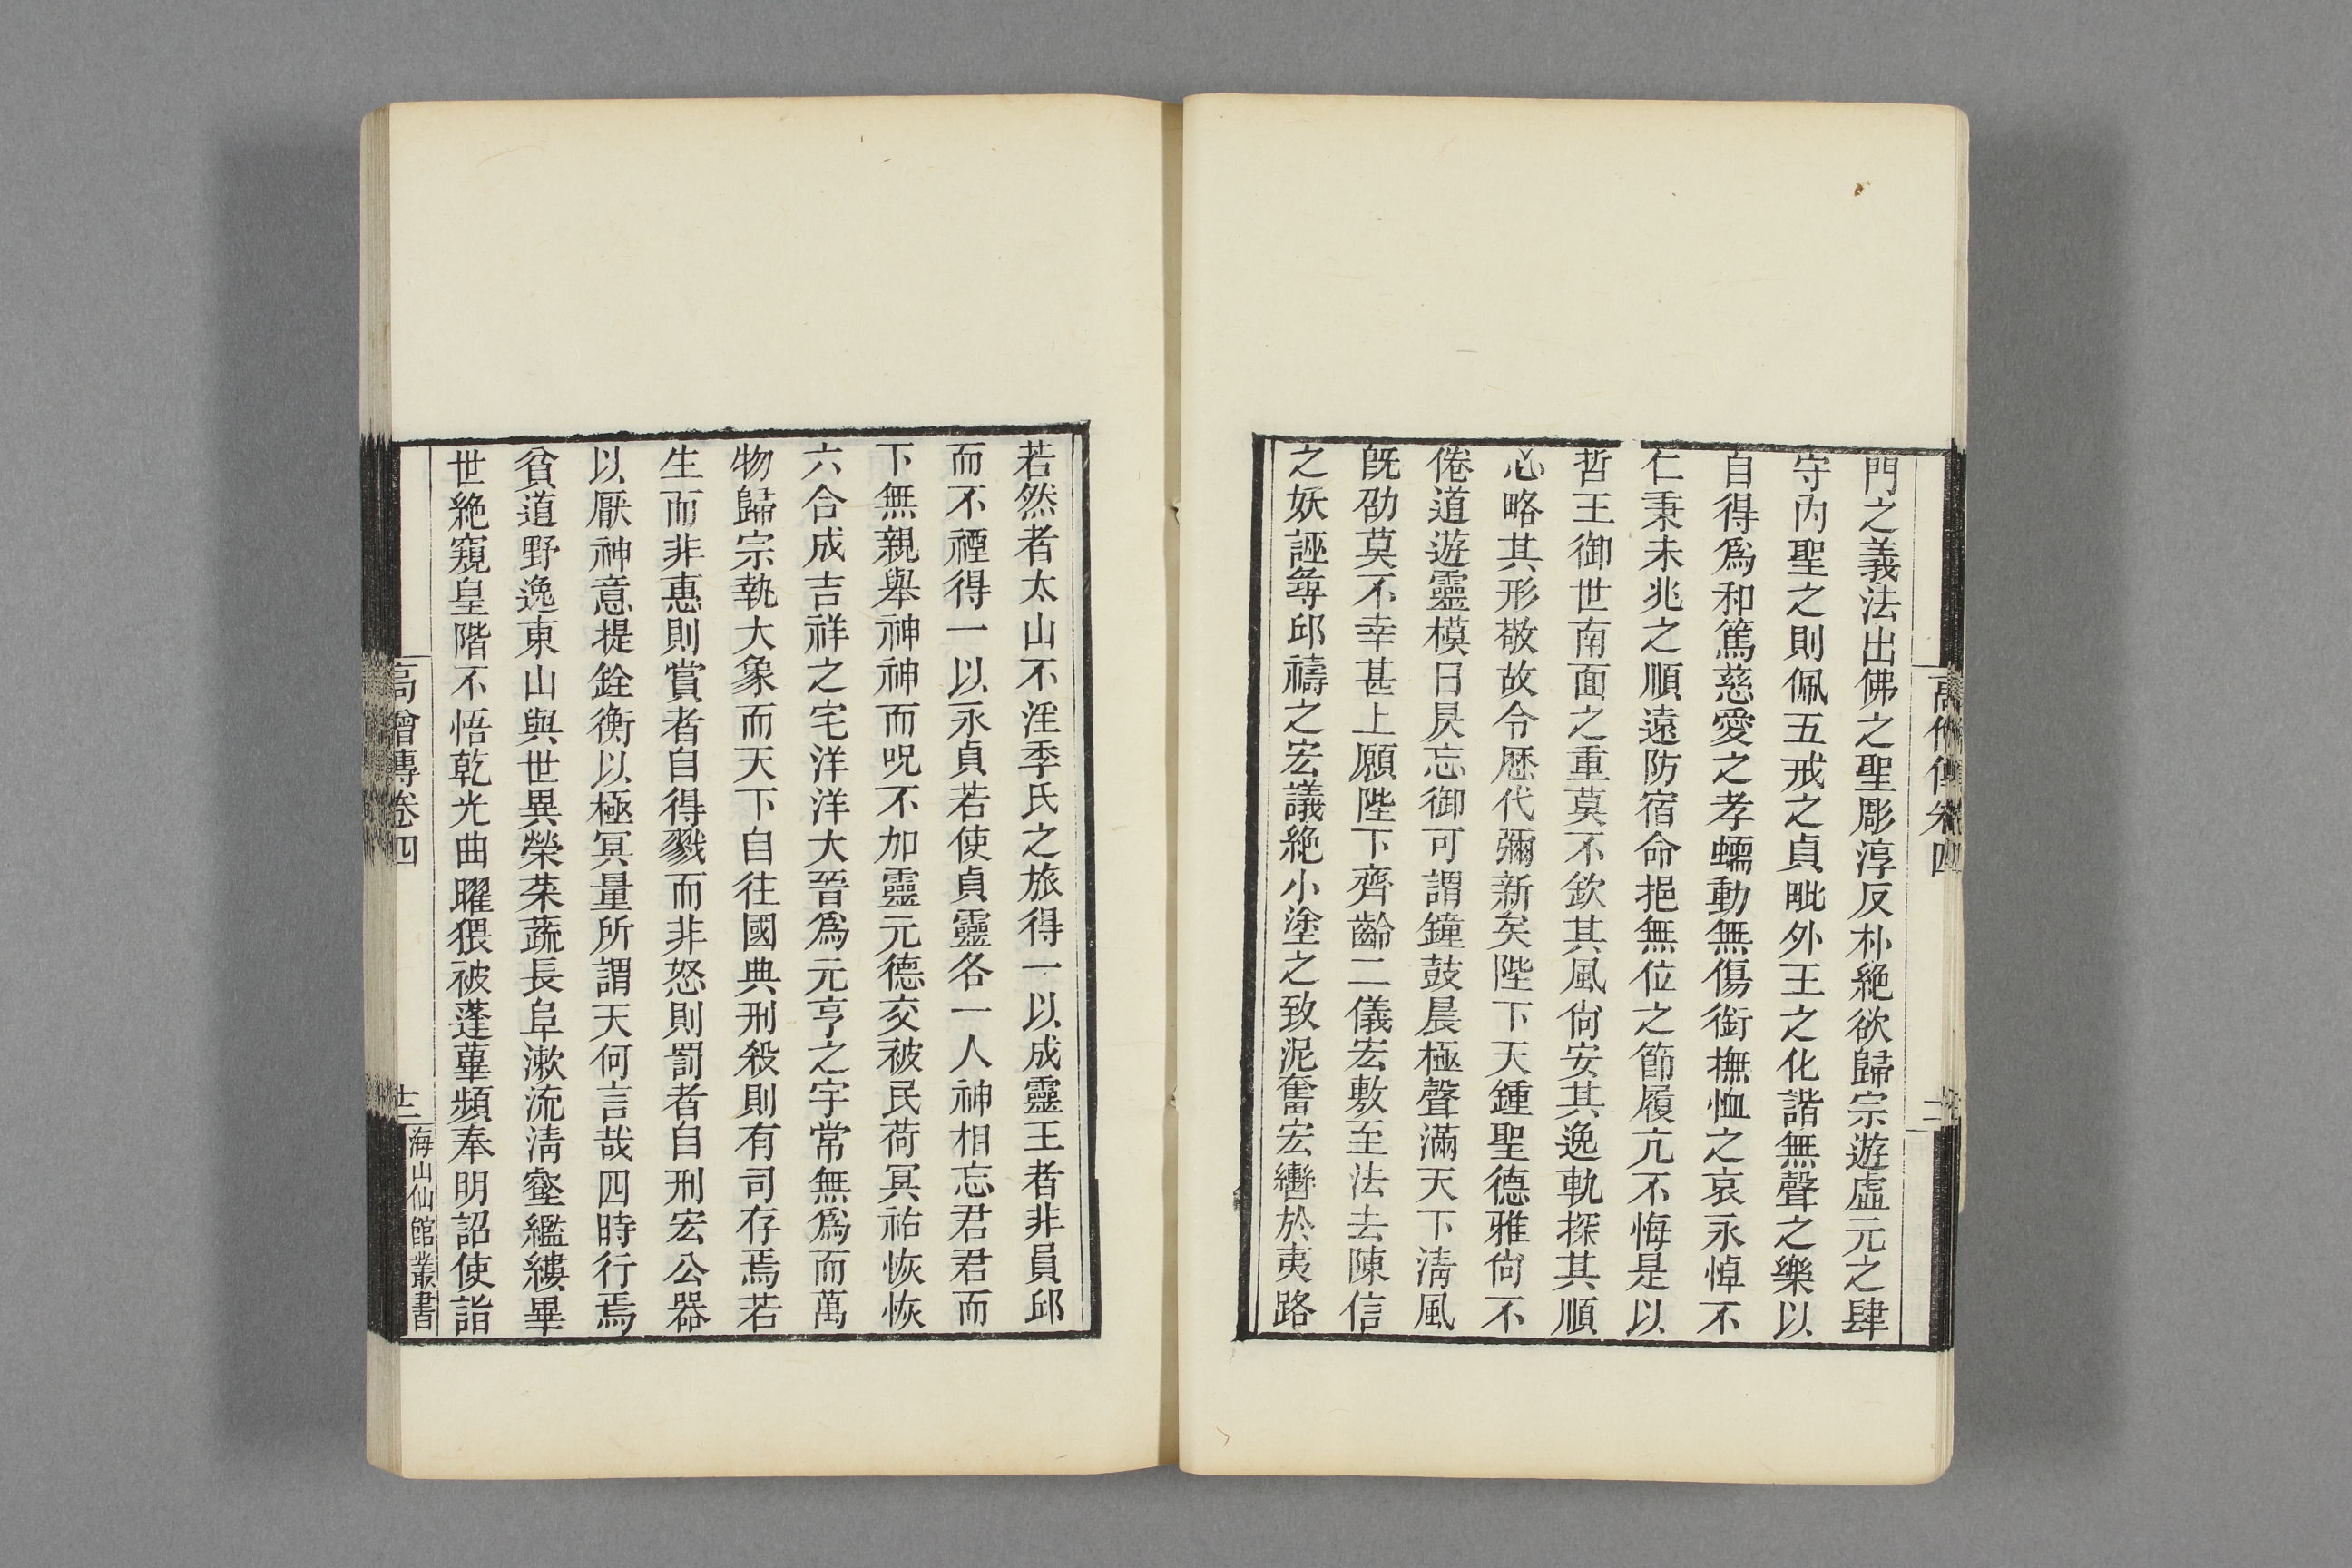 門之義法出佛之聖彫淳反朴絶欲歸宗遊虛元之肆
守內聖之則佩五戒之貞毗外王之化諧無聲之樂以
自得爲和篤慈愛之孝蠕動無傷銜撫恤之哀永悼不
仁秉未兆之順遠防宿命挹無位之節履亢不悔是以
哲王御世南面之重莫不欽其風尙安其逸軌探其順
心略其形敬故令歷代彌新矣陛下天鍾聖德雅尙不
倦道遊靈模日昃忘御可謂鐘鼓晨極聲滿天下淸風
旣劭莫不幸甚上願陛下齊齡二儀宏敷至法去陳信
之妖誣尋邱禱之宏議絶小塗之致泥奮宏轡於夷路
若然者太山不淫季氏之旅得一以成靈王者非員邱
而不禋得一以永貞若使貞靈各一人神相忘君君而
下無親舉神神而呪不加靈元德交被民荷冥祐恢恢
六合成吉祥之宅洋洋大晉爲元亨之宇常無爲而萬
物歸宗執大象而天下自往國典刑殺則有司存焉若
生而非惠則賞者自得戮而非怒則罰者自刑宏公器
以厭神意提銓衡以極冥量所謂天何言哉四時行焉
貧道野逸東山與世異榮菜蔬長阜漱流淸壑襤縷畢
世絶窺皇階不悟乾光曲曜猥被蓬蓽頻奉明詔使詣
高僧傳卷四
海山仙館叢書